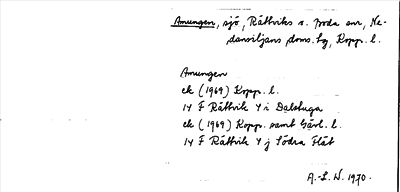 Amungen, sjö, Rättviks s. Boda snr, Ne-
dansiljans doms. hg, Kopp. l.
Amungen
ek (1969) Kopp. l.
14 F Rättvik 4 i Dalstuga
ek (1969) Kopp. samt Gävl. l.
14 F Rättvik 4 j Södra Flät
A.-L. N. 1970.